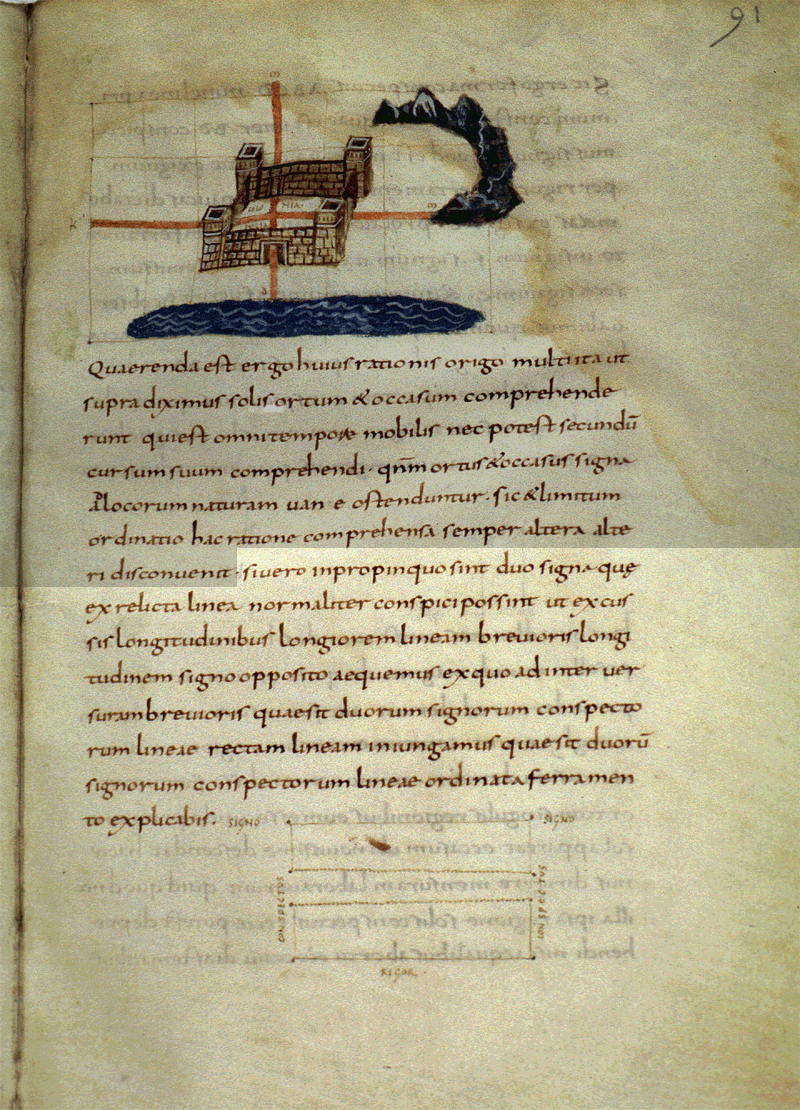 91
Quaerenda est ergo huius rationis origo multi ita ut
supra diximus solis ortum & occasum comprehende
runt qui est omni tempore mobilis nec potest secundū
cursum suum comprehendi · qnm ortus & occasus signa
A locorum naturam uan e ostenduntur · sic & limitum
ordinatio hac ratione comprehensa semper altera alte
ri disconuenit · si uero in propinquo sint duo signa quę
ex relicta linea normaliter conspici possint ut excus
sis longitudinibus longiorem lineam breuioris longi
tudinem signo opposito aequemus ex quo ad inter uer
suram breuioris quae sit duorum signorum conspecto
rum lineae rectam lineam iniungamus quae sit duorū
signorum conspectorum lineae ordinata ferramen
to explicabis.
SIGNO SIGNO
CONSPECTUS CONSPECTUS
RIGOR